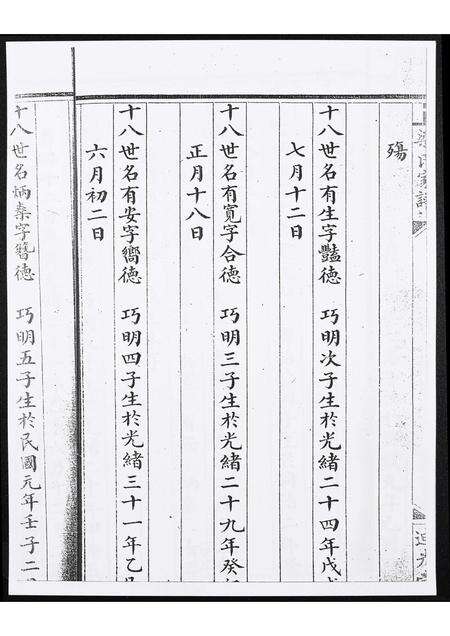 氏家譜
殤
十八世名有生字豔德 巧明次子生於光緒二十四年戊戌
七月十二日
十八世名有寬字合德 巧明三子生於光緒二十九年癸卯
正月十八日
十八世名有安字嚮德 巧明四子生於光緒三十一年乙巳
六月初二日
十八世名炳燊字 德 巧明五子生於民國元年壬子二